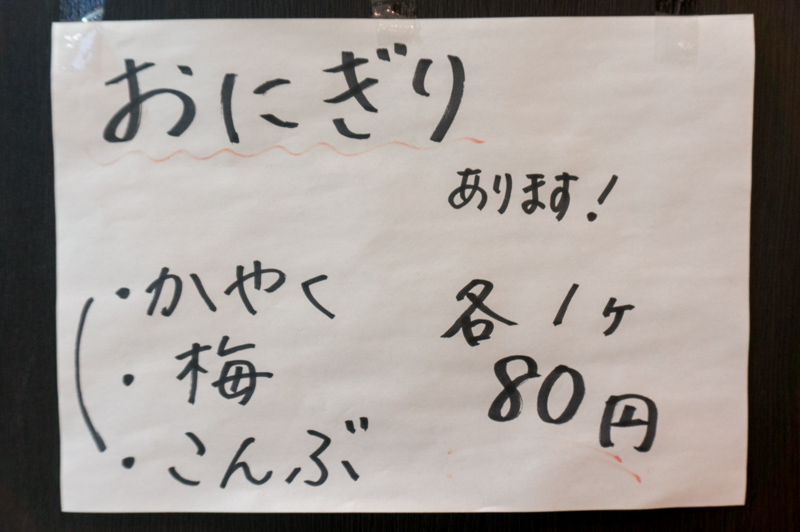 おにぎり
あります!
・かやく
・梅
・こんぶ
各1ヶ
80円